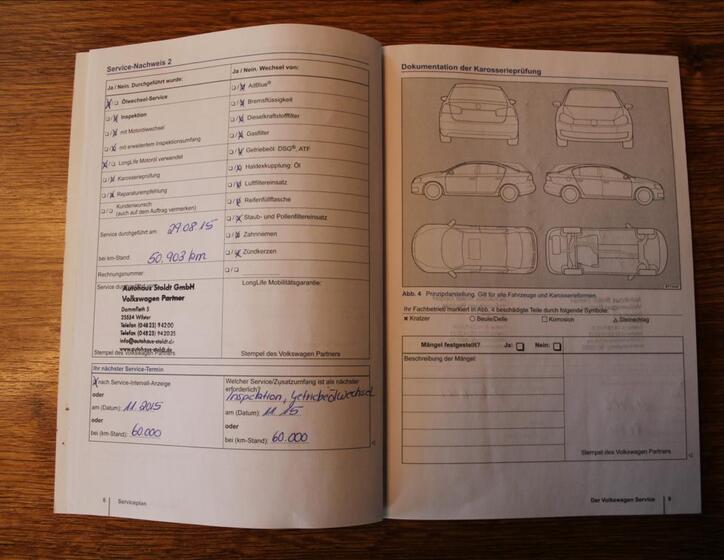 Service-Nachweis 2
Ja / Nein. Durchgeführt wurde:
Ölwechsel-Service
Inspektion
mit Motorölwechsel
mit erweitertem Inspektionsumfang
LongLife Motoröl verwendet
Karosserieprüfung
Reparaturempfehlung
Kundenwunsch
(auch auf dem Auftrag vermerken)
Service durchgeführt am: 29.08.15
bei km-Stand: 50,903 km
Rechnungsnummer:
Service durchgeführt
Autohaus Stoldt GmbH
Volkswagen Partner
Dammfleth 5
25554 Wilster
Telefon (04823) 94200
Telefax (04823) 942025
info@autohaus-stoldt.de
www.autohaus-stoldt.de
Stempel des Volkswagen Partners
Ja / Nein. Wechsel von:
AdBlue®
Bremsflüssigkeit
Dieselkraftstofffilter
Gasfilter
Getriebeöl: DSG®, ATF
Haldexkupplung: Öl
Luftfiltereinsatz
Reifenfüllflasche
Staub- und Pollenfiltereinsatz
Zahnriemen
Zündkerzen
LongLife Mobilitätsgarantie:
Stempel des Volkswagen Partners
Ihr nächster Service-Termin
nach Service-Intervall-Anzeige
oder
am (Datum): 11.2015
oder
bei (km-Stand): 60.000
Welcher Service/Zusatzumfang ist als nächster
erforderlich?
Inspektion, Getriebeölwechsel
am (Datum): 11.15
oder
bei (km-Stand): 60.000
8 Serviceplan
Dokumentation der Karosserieprüfung
Abb. 4 Prinzipdarstellung. Gilt für alle Fahrzeuge und Karosserieformen.
Ihr Fachbetrieb markiert in Abb. 4 beschädigte Teile durch folgende Symbole:
Kratzer Beule/Delle Korrosion Steinschlag
Mängel festgestellt? Ja: Nein:
Beschreibung der Mängel:
Stempel des Volkswagen Partners
Der Volkswagen Service 9